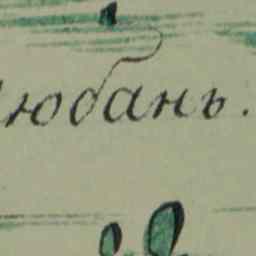 Любань.